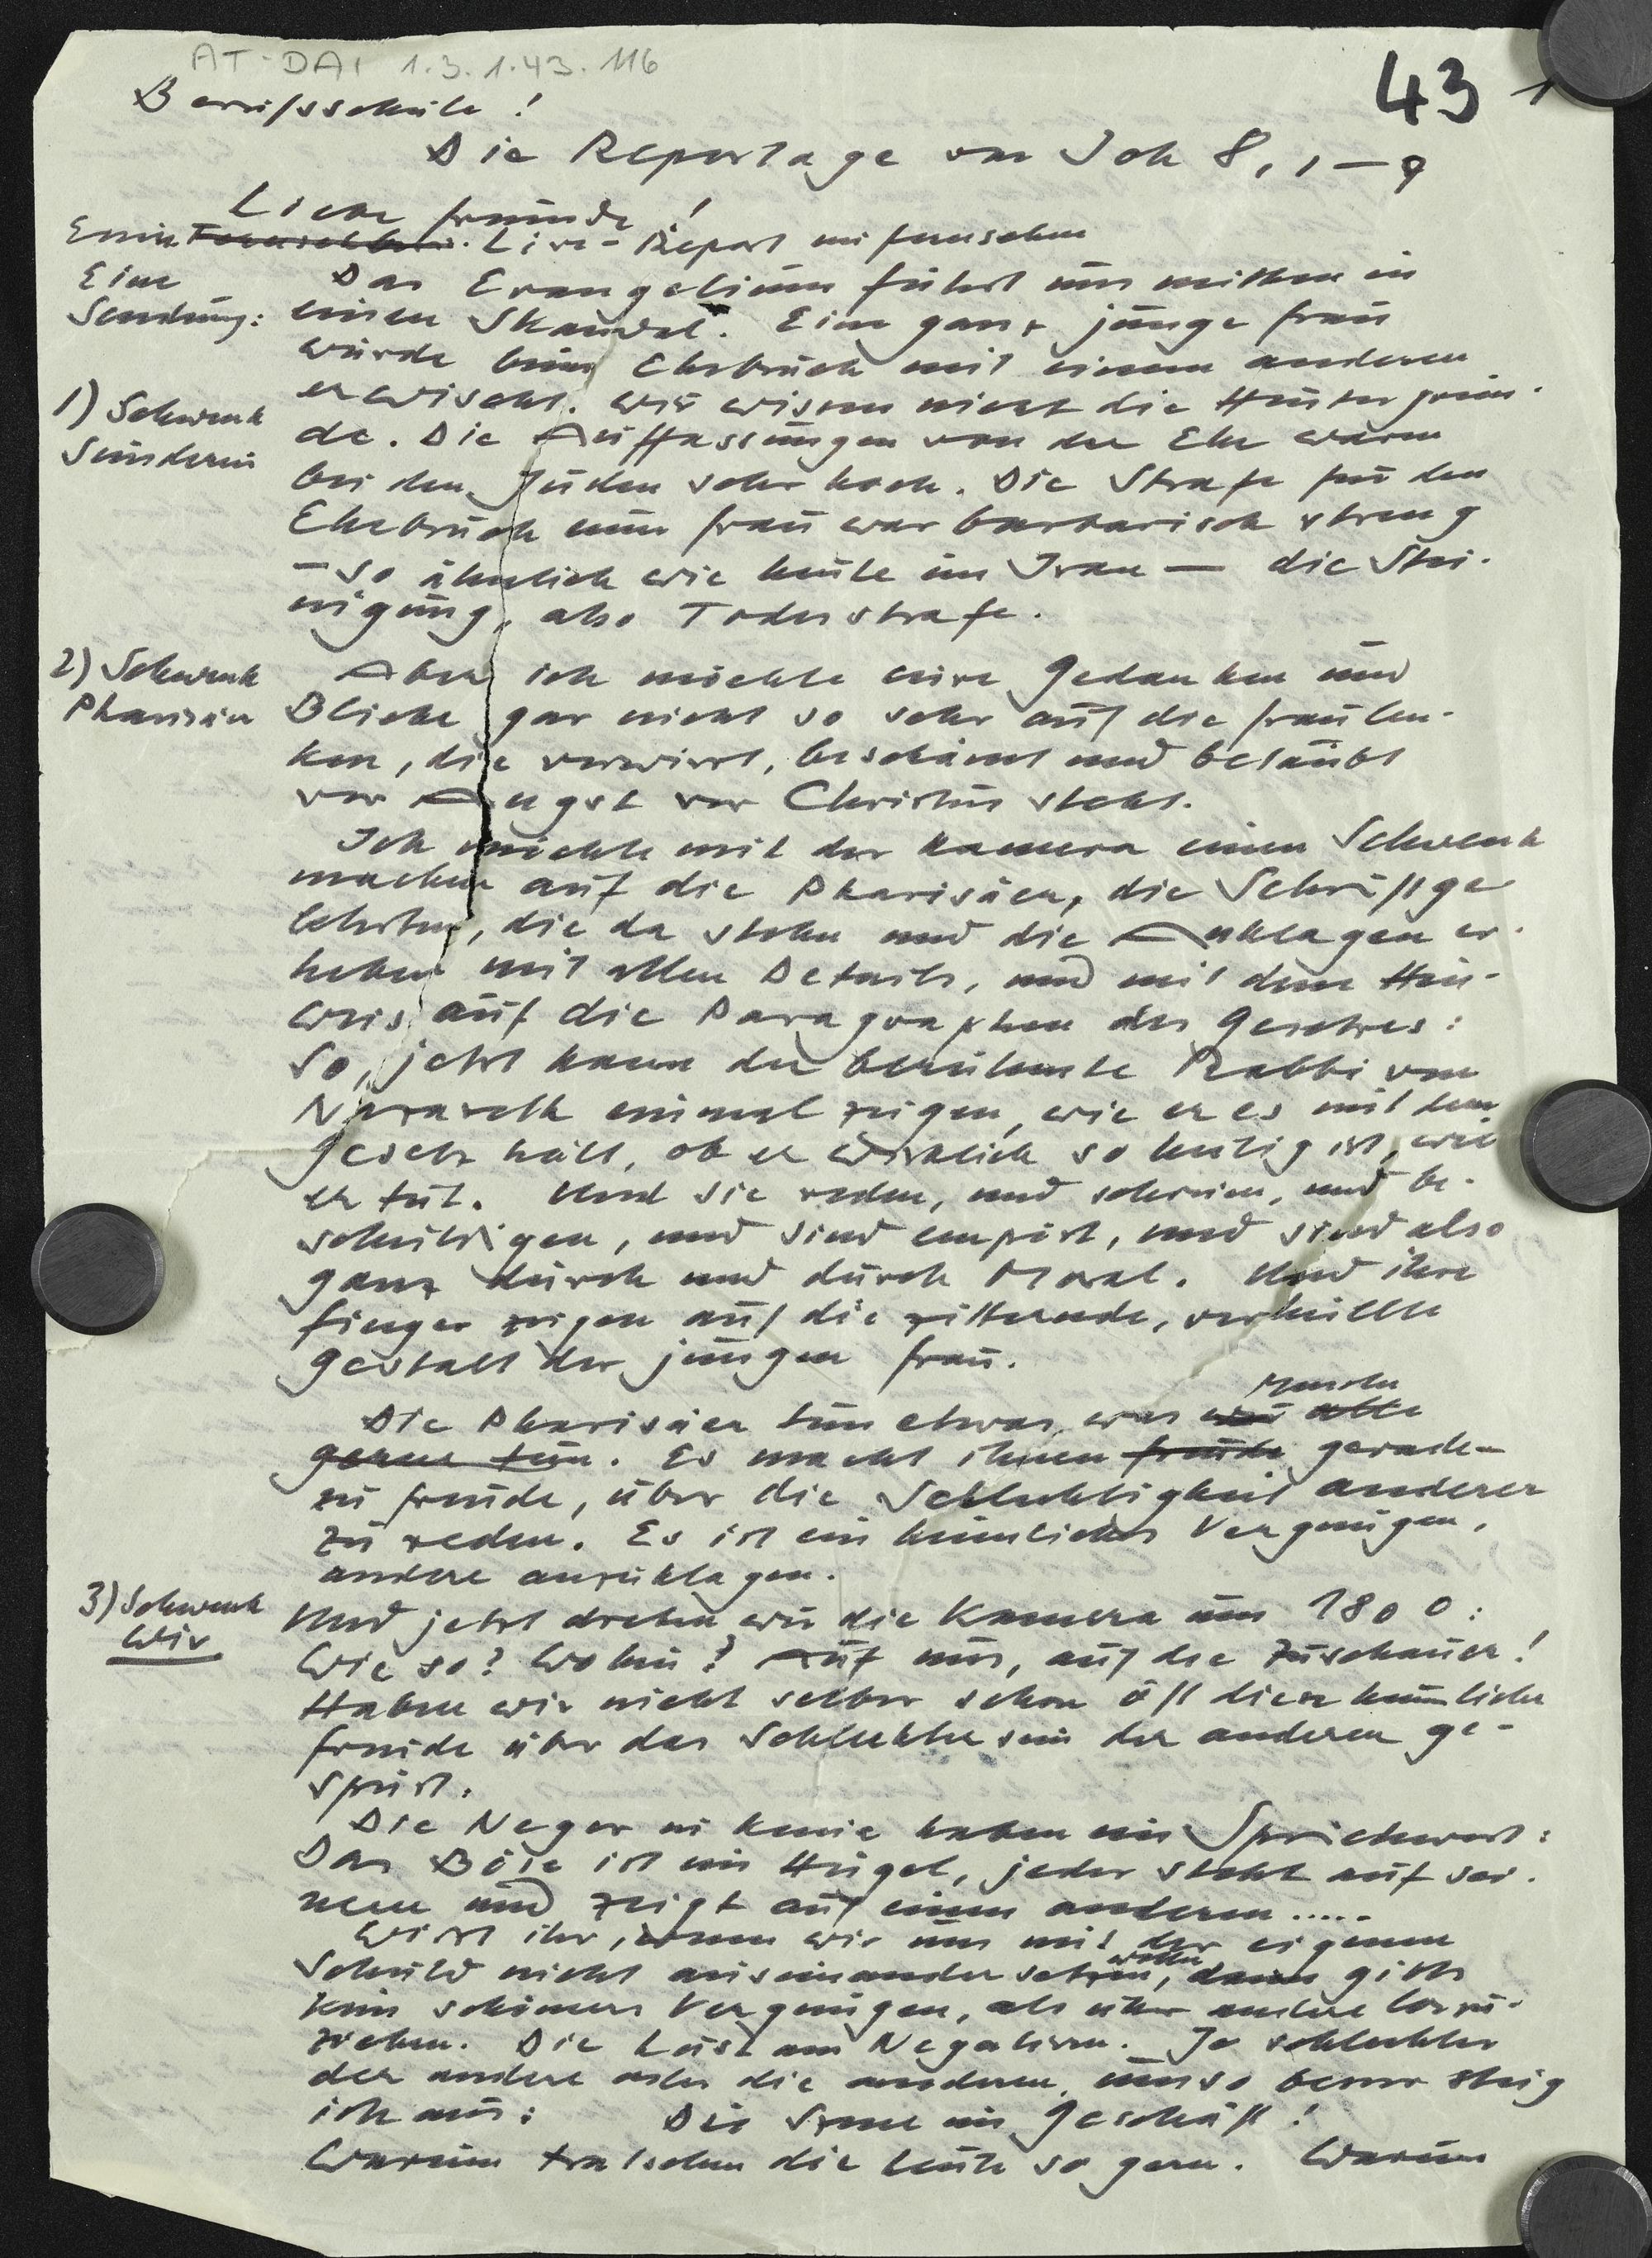 AT-DAI 1.3.1.43.116
43 1
Berufsschule!
Die Reportage von Joh 8, 1–9
Liebe Freunde!
Live-Report im Fernsehen
Eine
Sendung:
Das Evangelium führt uns mitten in
einen Skandal. Eine ganz junge Frau
wurde beim Ehebruch mit einem anderen
1) Schwenk
Sünderin
erwischt. Wir wissen nicht die Hintergrün-
de. Die Auffassungen von der Ehe waren
bei den Juden sehr hoch. Die Strafe für den
Ehebruch einer Frau war barbarisch streng
– so ähnlich wie heute im Iran – die Stei-
nigung, also Todesstrafe.
2) Schwenk
Pharisäer
Aber ich möchte eure Gedanken und
Blicke gar nicht so sehr auf die Frau len-
ken, die verwirrt, beschämt und betäubt
vor Angst vor Christus steht.
Ich möchte mit der Kamera einen Schwenk
machen auf die Pharisäer, die Schriftge
lehrten, die da stehen und die Anklagen er-
heben mit allen Details, und mit dem Hin-
weis auf die Paragraphen des Gesetzes:
So, jetzt kann der berühmte Rabbi von
Nazareth einmal zeigen, wie er es mit dem
Gesetz hält, ob er wirklich so heilig ist, wie
er tut. Und sie reden, und schreien, und be-
schuldigen, und sind empört, und sind also
ganz durch und durch Moral. Und ihre
Finger zeigen auf die zitternde, verhüllte
Gestalt der jungen Frau.
Die Pharisäer tun etwas, was wir alle
gerne tun. Es macht ihnen Freude gerade-
zu Freude, über die Schlechtigkeit anderer
zu reden. Es ist ein heimliches Vergnügen,
andere anzuklagen.
3) Schwenk
Wir
Und jetzt drehen wir die Kamera um 180 0:
Wieso? Wohin? Auf uns, auf die Zuschauer!
Haben wir nicht selber schon oft diese heimliche
Freude über das Schlechtsein der anderen ge-
spürt.
Die Neger in Kenia haben ein Sprichwort:
Das Böse ist ein Hügel, jeder steht auf sei-
nem und zeigt auf einen anderen.....
Wisst ihr, wenn wir uns mit der eigenen
Schuld nicht auseinandersetzen wollen, dann gibts
kein schöneres Vergnügen, als über andere loszu-
ziehen. Die Lust am Negativen. Je schlechter
der andere oder die anderen, umso besser steig
ich aus: Die Szene im Geschäft!
Warum tratschen die Leute so gern. Warum